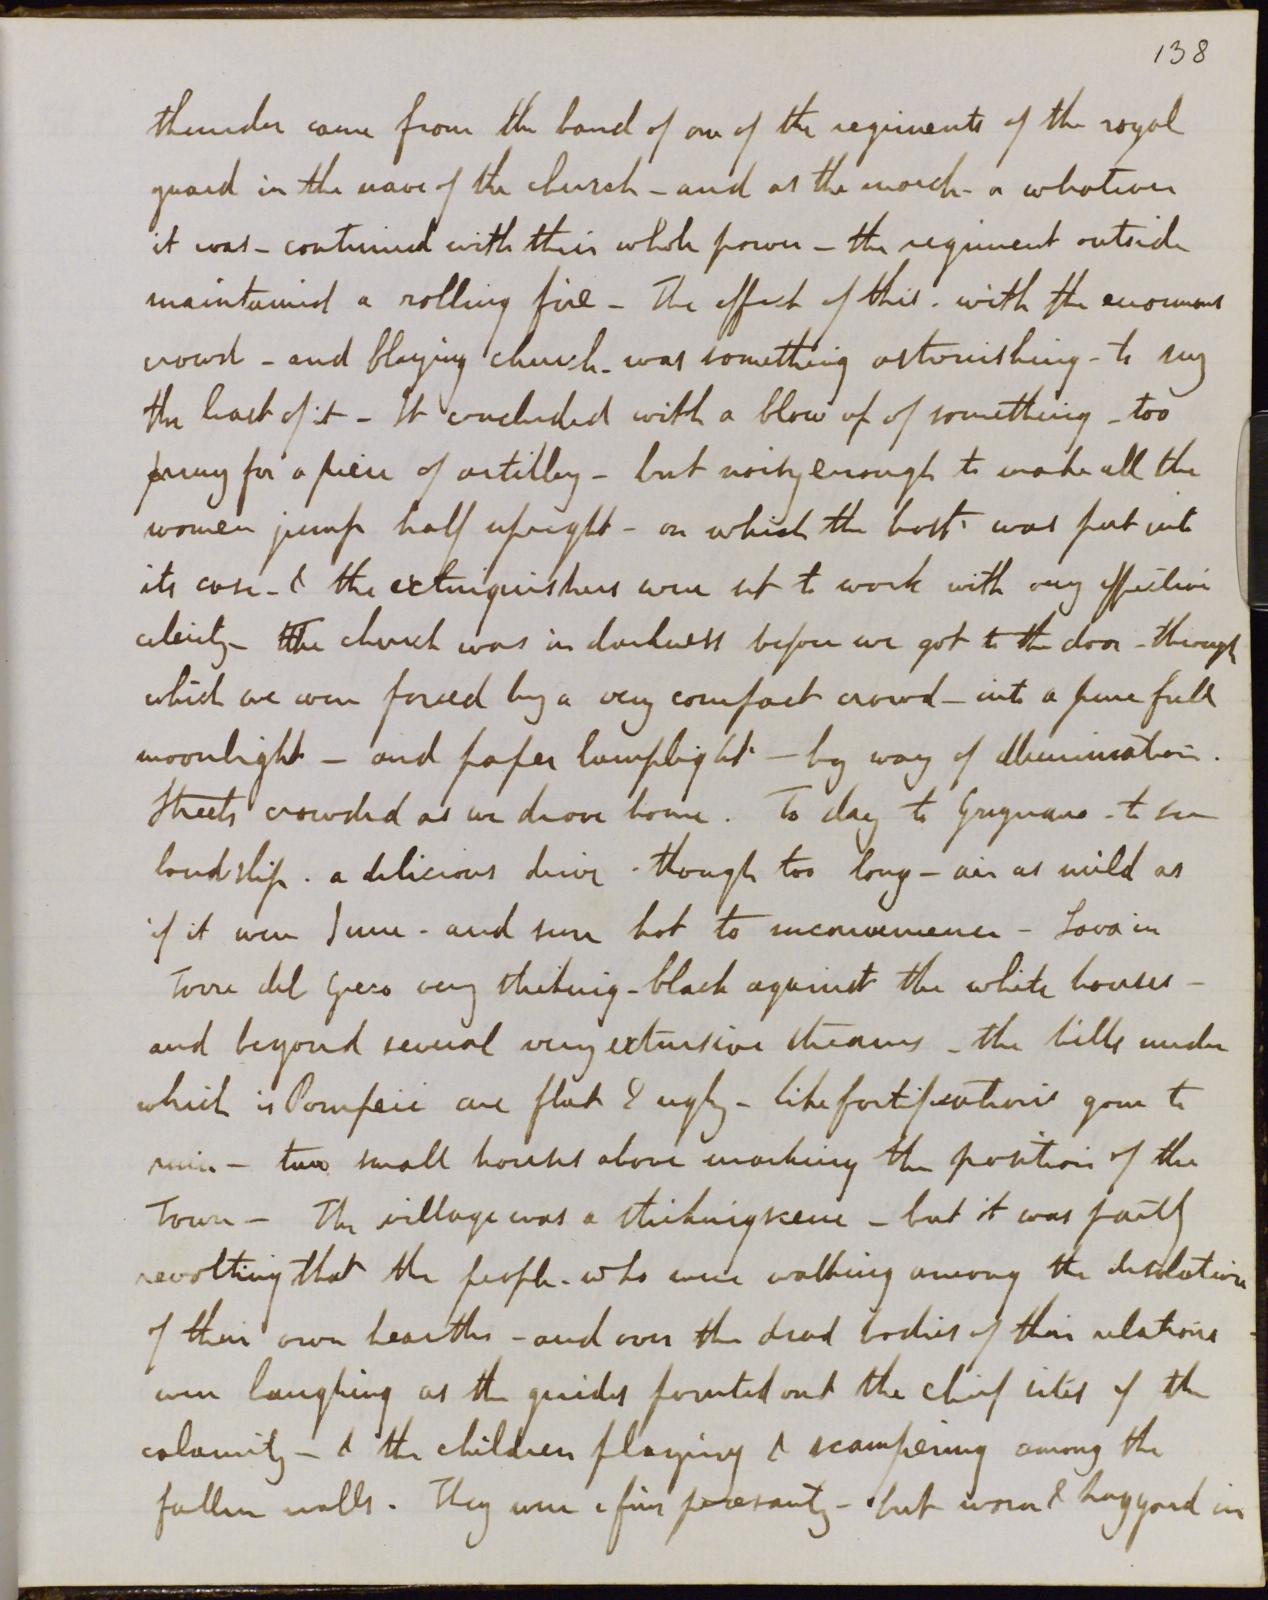 138
thunder came from the band of one of the regiments of the royal
guard in the nave of the church - and as the march - or whatever
it was - continued with their whole power - the regiment outside
maintained a rolling fire - The effect of this - with the enormous
crowd - and blazing church - was something astonishing - to say
the least of it - It concluded with a blow up of something - too
puny for a piece of artillery - but noisy enough to make all the
women jump half upright - on which the host was put into
its case - & the extinguishers were set to work with very effective
celerity - The church was in darkness before we got to the door - through
which we were forced by a very compact crowd - into a pure full
moonlight - and paper lamplight - by way of illumination.
Streets crowded as we drove home. To day to Gragnano - to see
landslip. a delicious drive - though too long - air as mild as
if it were June - and sun hot to inconvenience - Lava in
Torre del Greco very striking - black against the white houses -
and beyond several very extensive streams - the hills under
which is Pompeii are flat & ugly - like fortifications gone to
ruin - two small houses above marking the position of the
Town - The village was a striking scene - but it was partly
revolting that the people - who were walking among the desolation
of their own hearths - and over the dead bodies of their relations -
were laughing as the guides pointed out the chief sites of the
calamity - & the children playing & scampering among the
fallen walls. They were a fine peasantry - but worn & haggard in